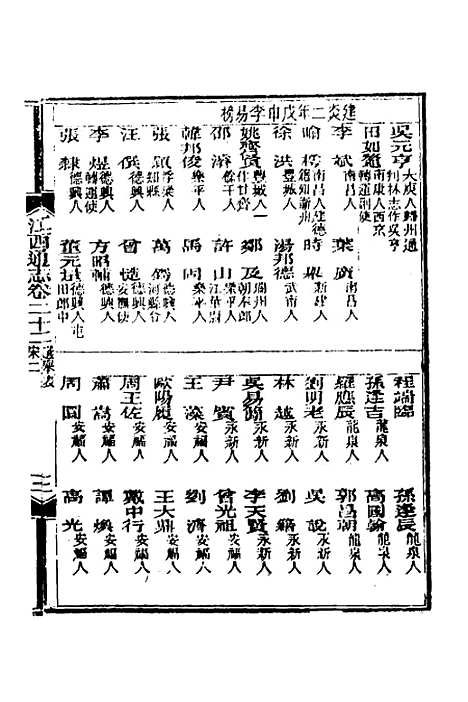 吳元亨 大庾人歸州通判林志作吳亨
田如鼇 南康人西京轉運副使
建炎二年戊申李易榜
李斌 南昌人
葉廣 南昌人
喻樗 南昌人建德籍知蘄州
時 新建人
徐洪 豐城人
湯邦德 武甯人
姚 豐城人一作甘
鄭及 瑞州人朝奉郎
邵 餘干人
許山 樂平人江華尉
韓邦俊 樂平人
馬問 樂平人
張 浮梁人知縣
萬 德興人河縣令
汪 德興人
曾 德興人安撫使
李煜 德興人轉運使
方昭 德興人
張 德興人
董元 德興人屯田郎中
江西通志卷二十二 選舉表 宋二
程端臨
孫逢辰 龍泉人
孫逢吉 龍泉人
高國翰 龍泉人
羅應辰 龍泉人
郭昌朝 龍泉人
劉明老 永新人
吳說 永新人
林越 永新人
劉 永新人
吳易簡 永新人
李天賢 永新人
尹 永新人
曾光祖 永新人
王溱 安福人
劉濟 安福人
歐陽 安福人
王大鼎 安福人
周王佐 安福人
戴中行 安福人
蕭嵩 安福人
譚煥 安福人
周圓 安福人
高光 安福人